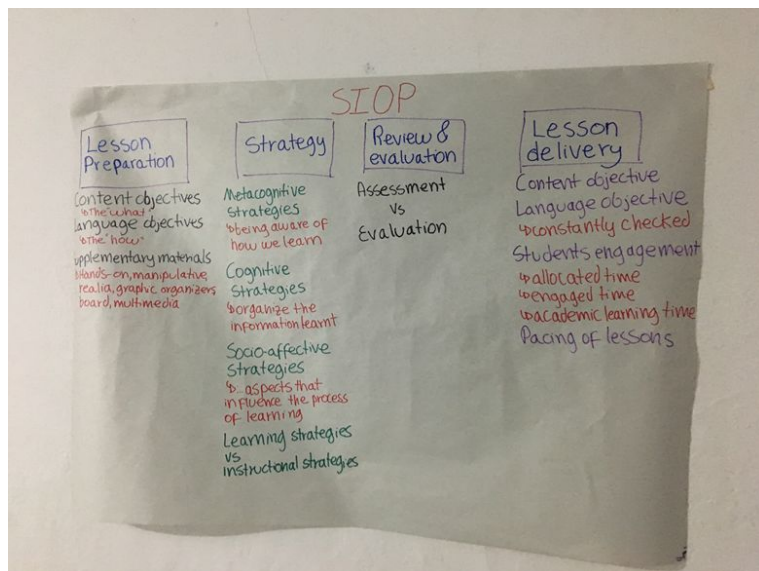 SIOP
Lesson
Preparation
Content objectives
↳The "what"
Language objectives
↳The "how"
upplementary materials
↳Hands-on, manipulative,
realia, graphic organizers
board, multimedia
Strategy
Metacognitive
strategies
↳being aware of
how we learn
Cognitive
Strategies
↳organize the
information learnt
Socio-affective
Strategies
↳ aspects that
influence the process
of learning
Learning strategies
vs
instructional strategies
Review &
evaluation
Assessment
vs
Evaluation
Lesson
delivery
Content objective
Language objective
↳constantly checked
Students engagement
↳allocated time
↳engaged time
↳academic learning time
Pacing of lessons